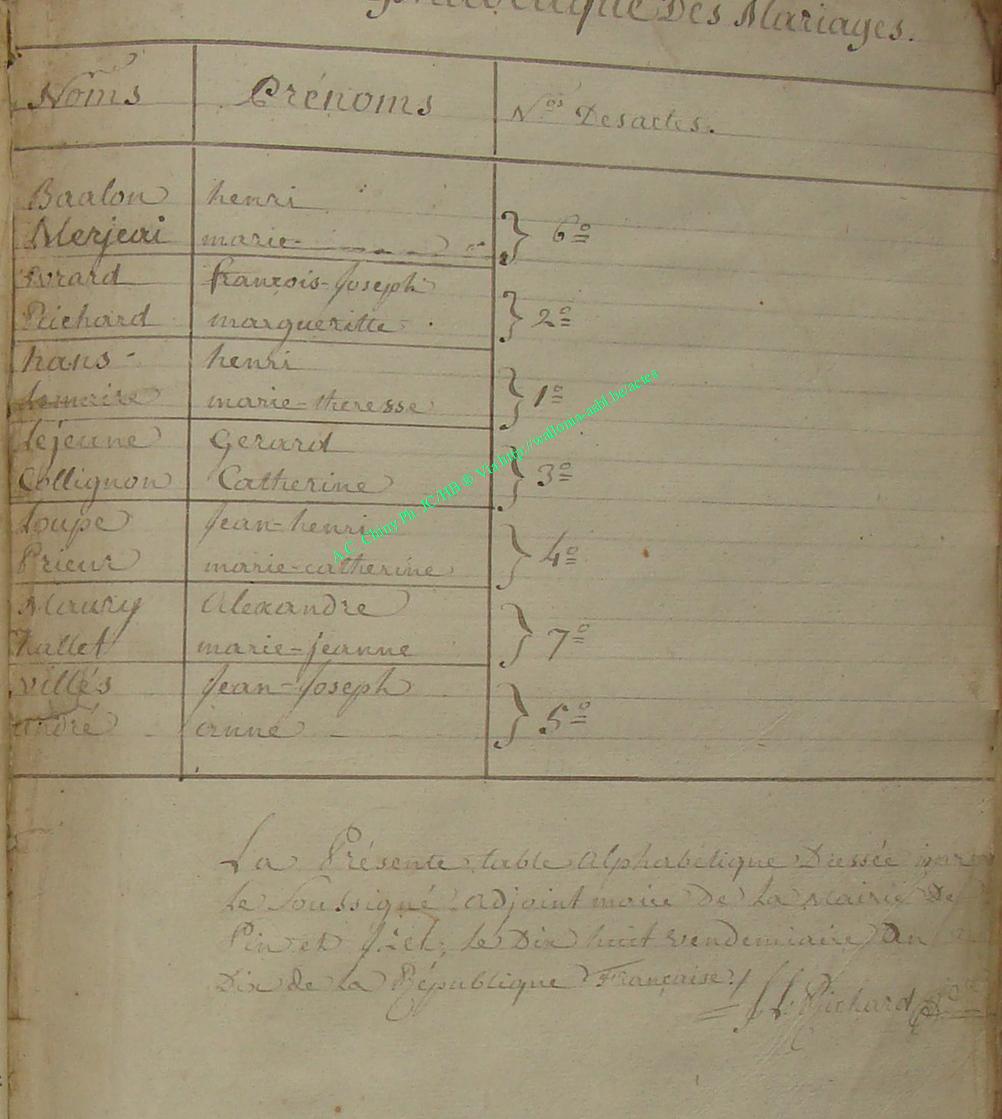 Des Mariages.
Noms Prénoms N.os Des actes.
Baalon henri
Merjeai marie 6º
Evrard françois-Joseph
Richard margueritte 2º
hans henri
Lemaire marie-theresse 1º
Lejeune Gerard
Collignon Catherine 3º
Loupe Jean-henri
Prieur marie-catherine 4º
Maury Alexandre
hallet marie-jeanne 7º
villés Jean-Joseph
andré anne 5º
La Présente table Alphabétique Dressée par
le Soussigné adjoint maire de La Mairie De
Pin et Izel, le Dix huit vendemiaire An
Dix de la République Française.
Richard
A.C. Chiny Ph. JC/HB ® Via http://wallonia-asbl.be/actes